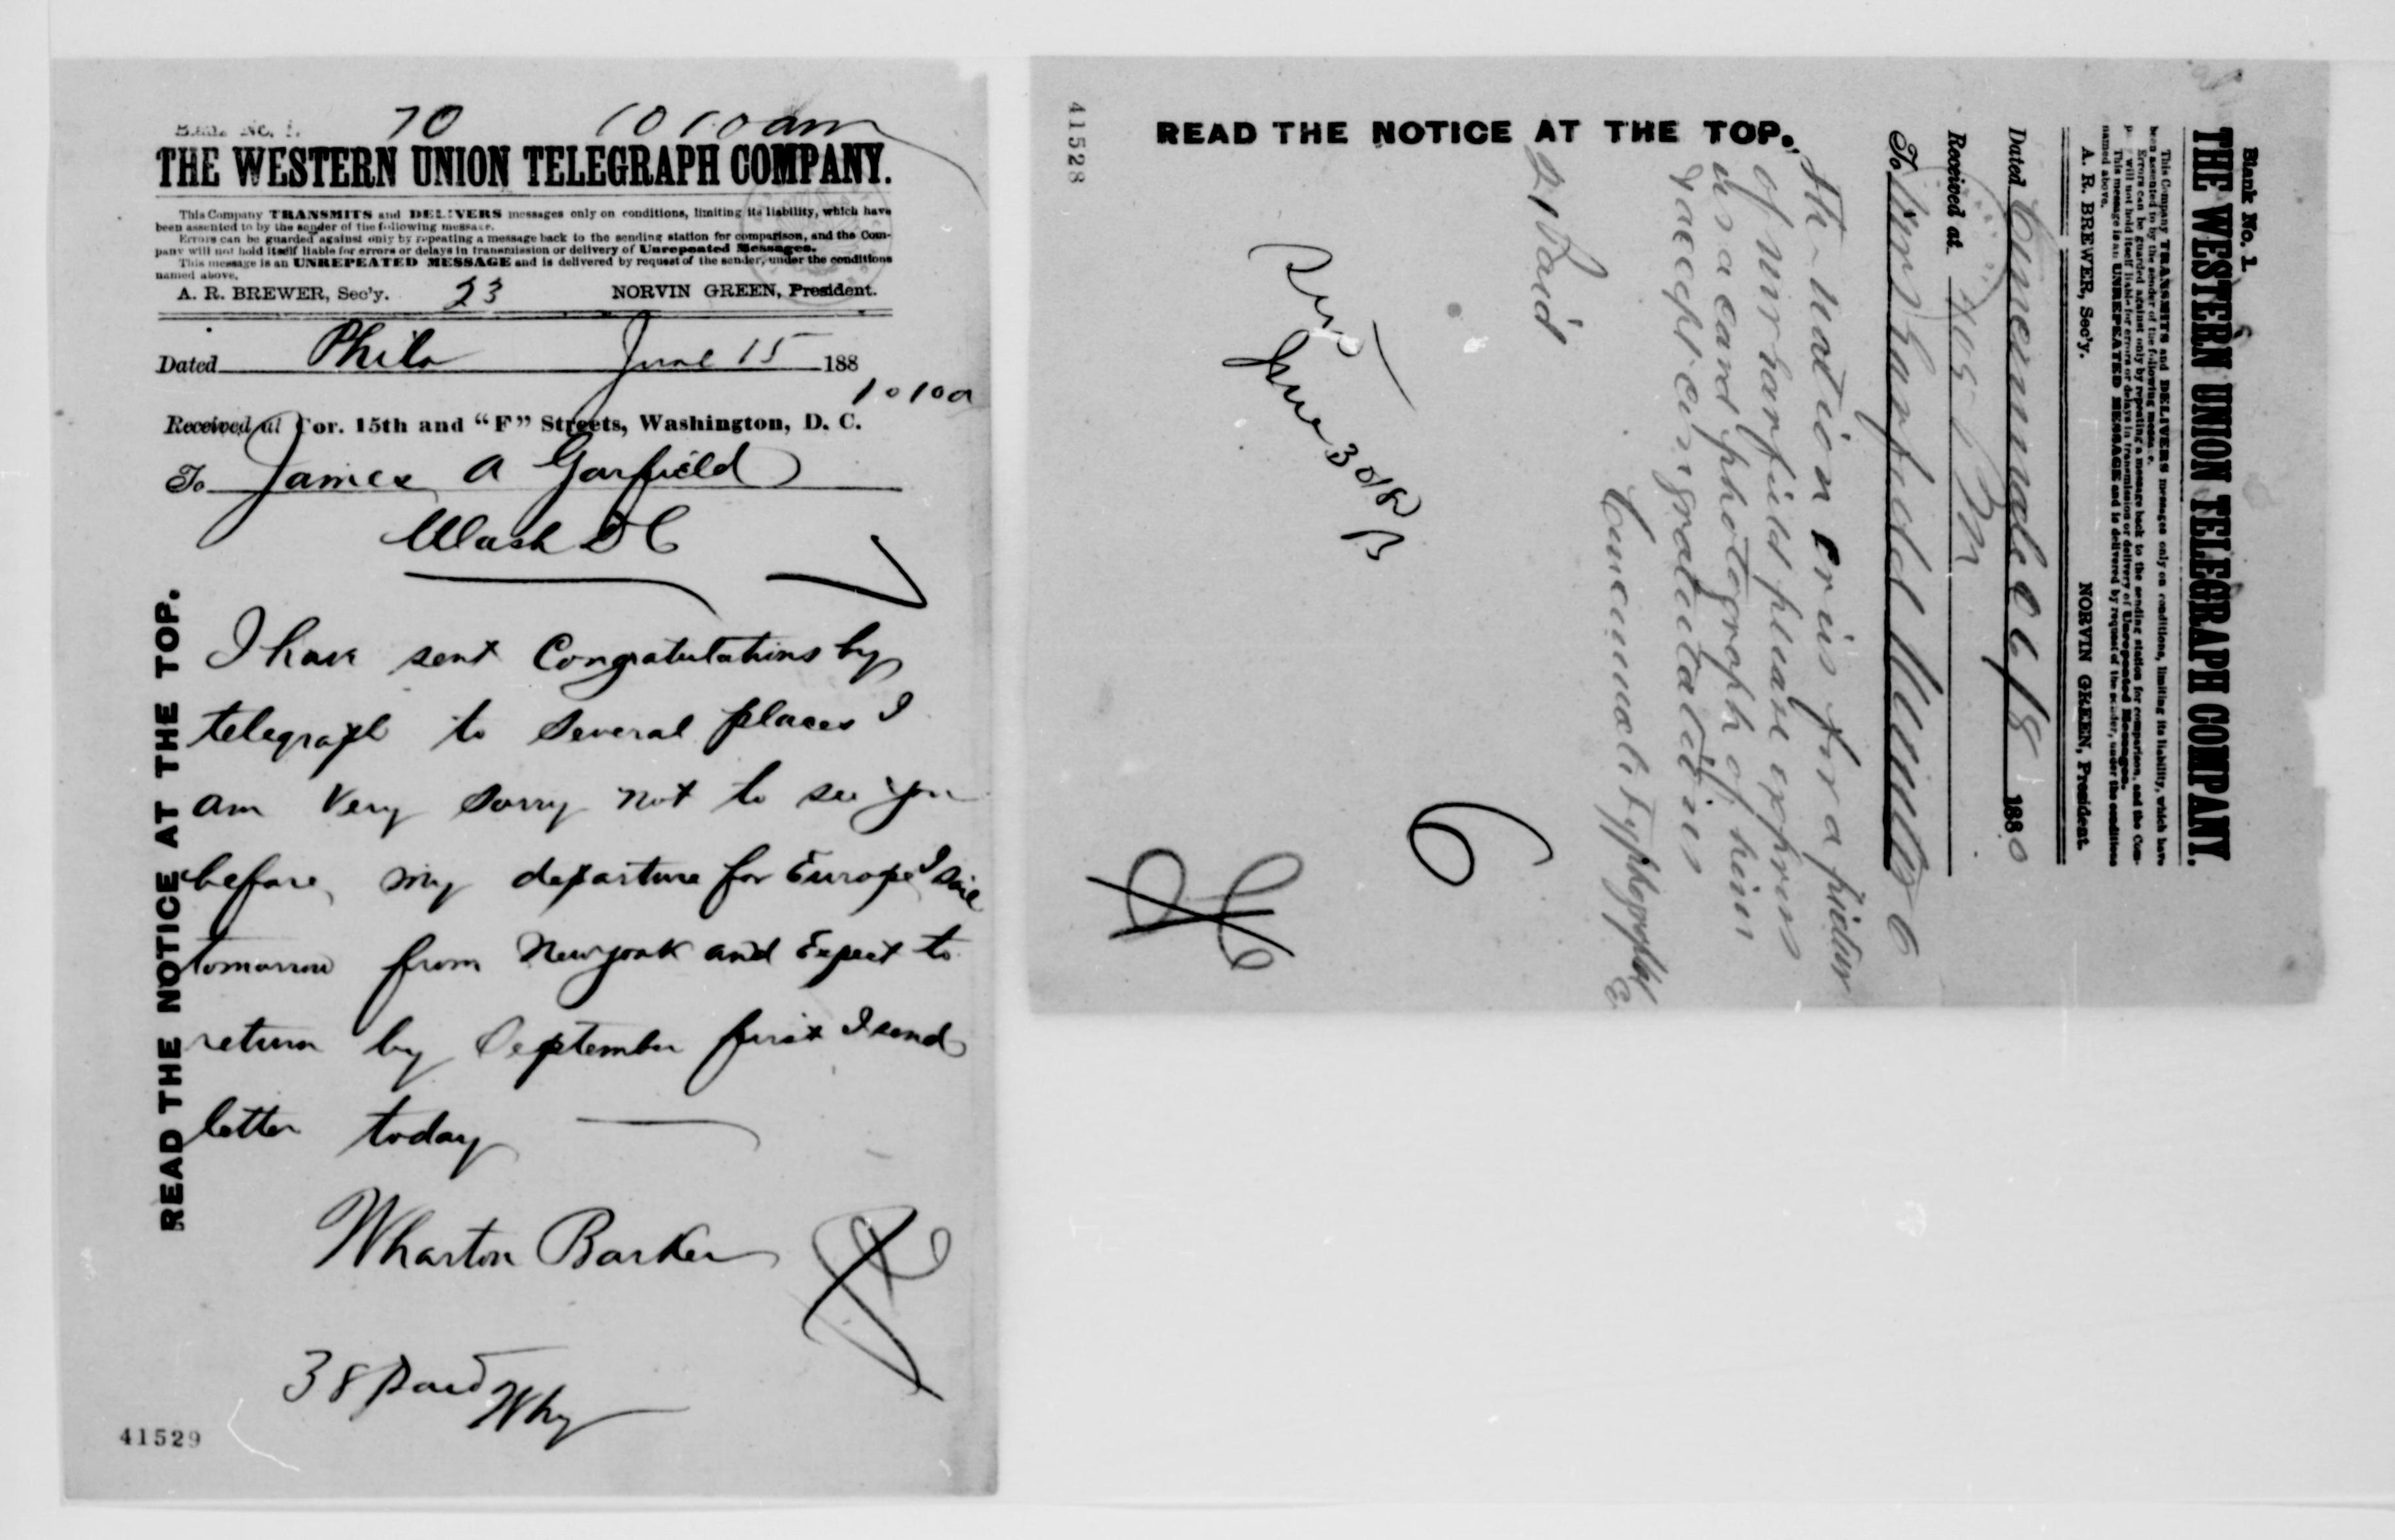 Blank No. 1.
70 10 10 am
THE WESTERN UNION TELEGRAPH COMPANY.
This Company TRANSMITS and DELIVERS messages only on conditions, limiting its liability, which have
been assented to by the sender of the following message.
Errors can be guarded against only by repeating a message back to the sending station for comparison, and the Com-
pany will not hold itself liable for errors or delays in transmission or delivery of Unrepeated Messages.
This message is an UNREPEATED MESSAGE and is delivered by request of the sender, under the conditions
named above.
A. R. BREWER, Sec'y. 23 NORVIN GREEN, President.
Dated Phila June 15 188
10 10a
Received at Cor. 15th and "F" Streets, Washington, D. C.
To James A Garfield
Wash DC
READ THE NOTICE AT THE TOP.
I have sent Congratulations by
telegraph to Several places I
am Very Sorry not to see you
before my departure for Europe I sail
tomorrow from New york and Expect to
return by September first I send
letter today
Wharton Barker
38 Paid Why
41529
Blank No. 1.
THE WESTERN UNION TELEGRAPH COMPANY.
This Company TRANSMITS and DELIVERS messages only on conditions, limiting its liability, which have
been assented to by the sender of the following message.
Errors can be guarded against only by repeating a message back to the sending station for comparison, and the Com-
pany will not hold itself liable for errors or delays in transmission or delivery of Unrepeated Messages.
This message is an UNREPEATED MESSAGE and is delivered by request of the sender, under the conditions
named above.
A. R. BREWER, Sec'y. NORVIN GREEN, President.
Dated Cincinnati O 6/8 1880
Received at
To Mrs Garfield Mentor O
The nation cries for a picture
of mr Garfield please express
us a card photograph of him
& accept congratulations
Cincinnati
21 Paid
June 30
6
READ THE NOTICE AT THE TOP.
41528